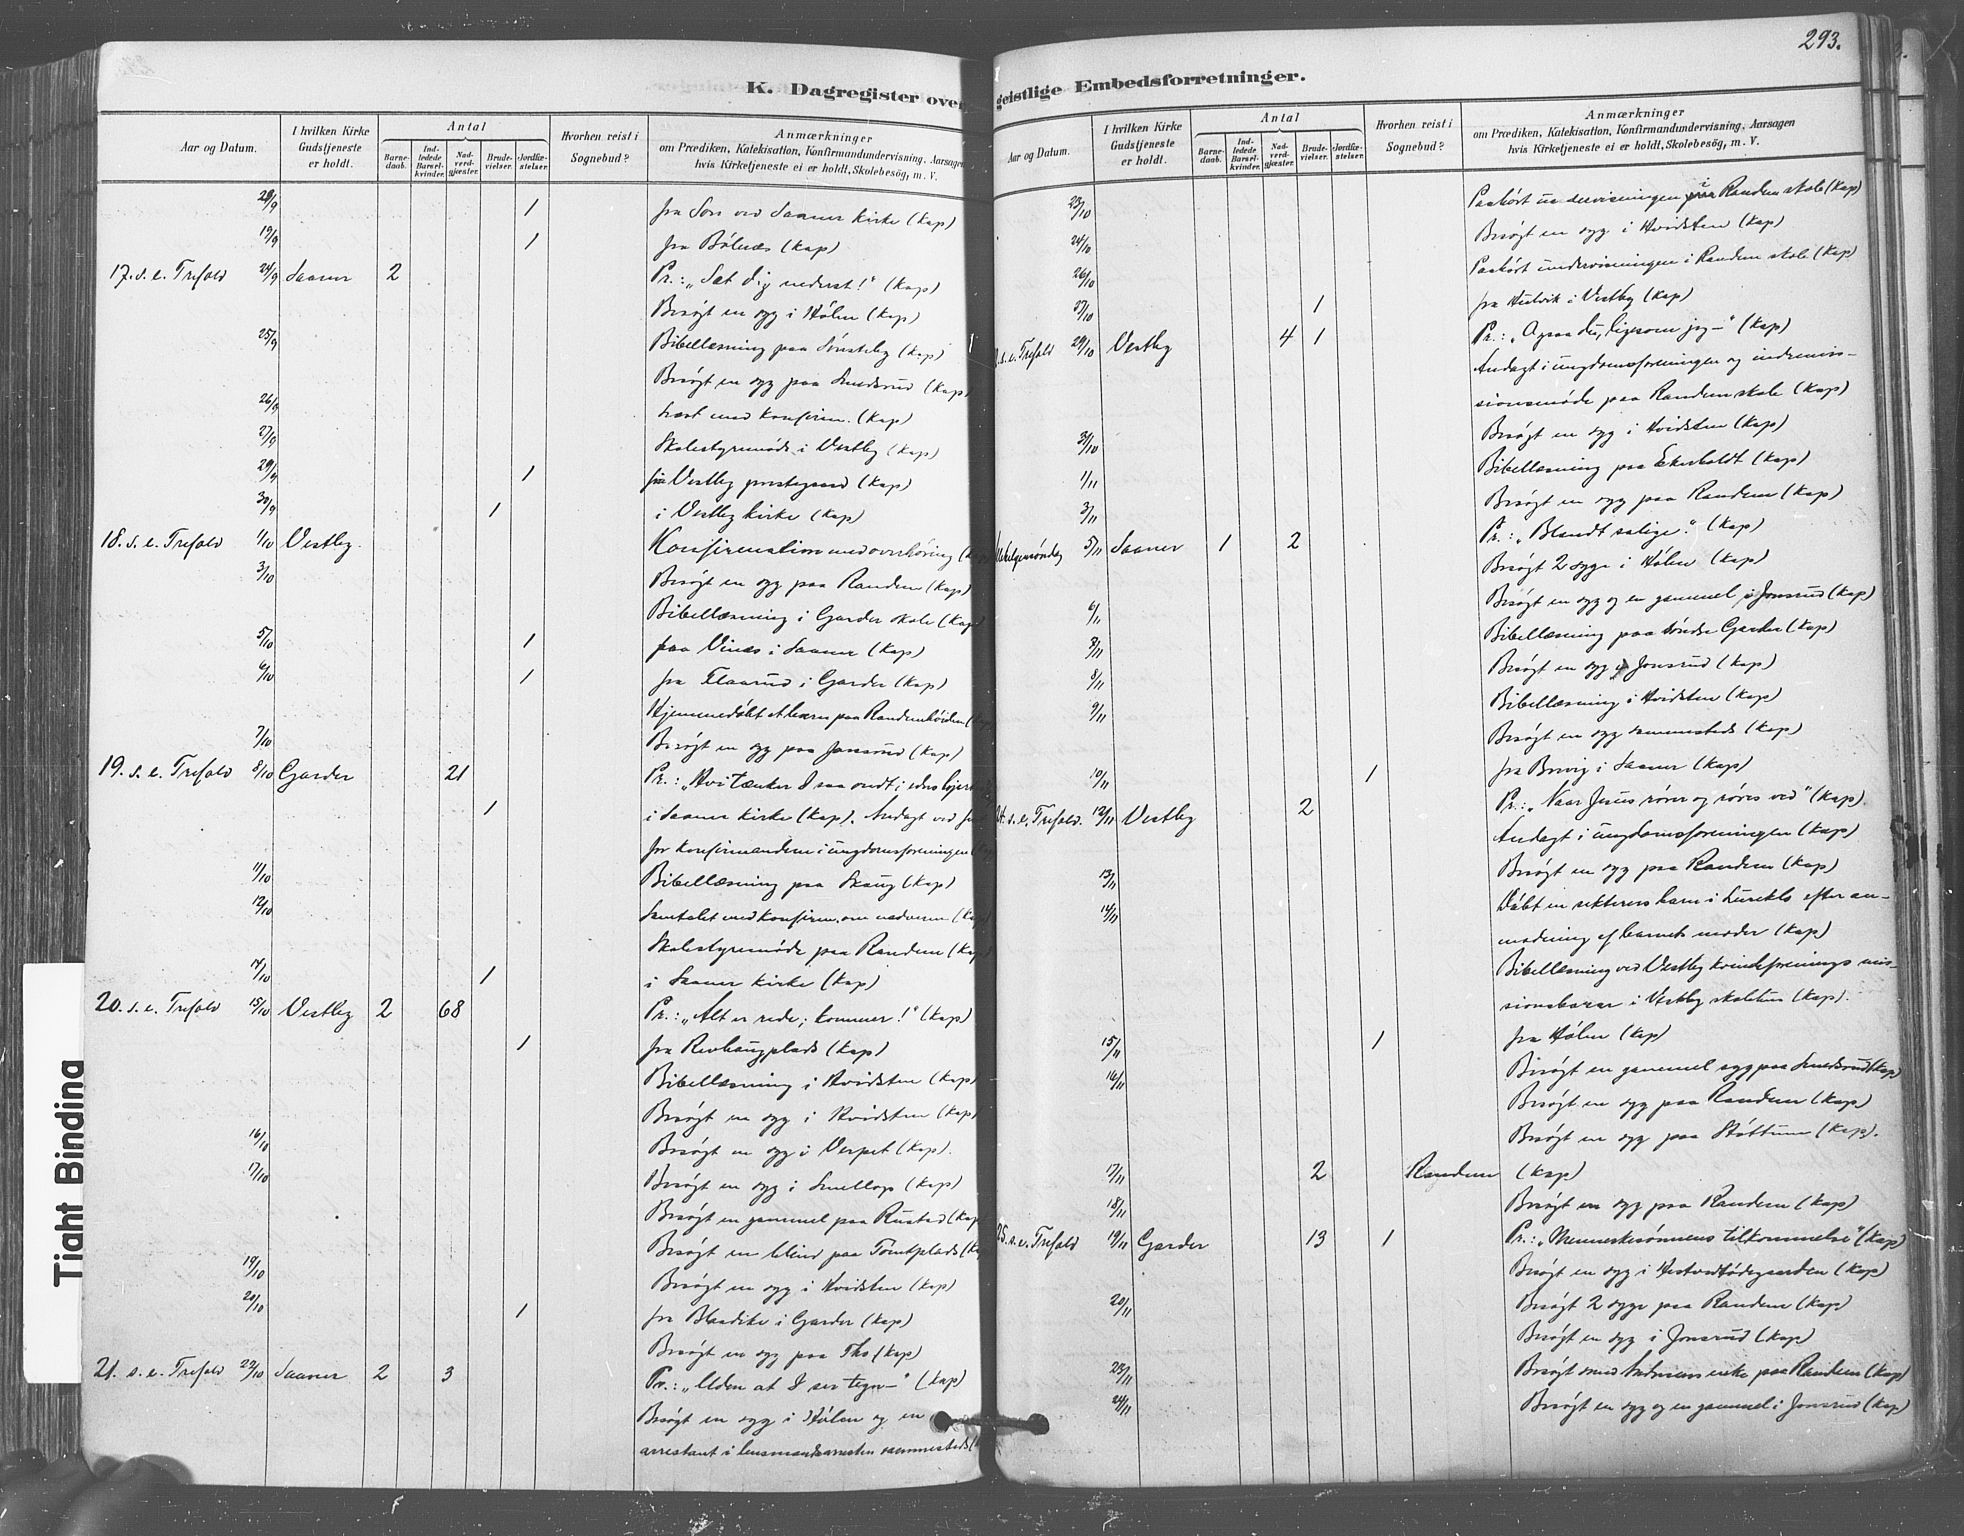 293.
K. Dagregister over
geistlige Embedsforretninger.
Aar og Datum.
I hvilken Kirke Gudstjeneste er holdt.
Antal
Barnedaab.
Indledede Barselkvinder.
Nadverdgjæster.
Brudevielser.
Jordfæstelser.
Hvorhen reist i Sognebud?
Anmærkninger
om Prædiken, Katekisation, Konfirmandundervisning, Aarsagen
hvis Kirketjeneste ei er holdt, Skolebesög, m. V.
1 fra Son ved Saaner kirke (Kap)
19/9 1 fra Bölnæs (Kap)
17. s. e. Trefold 24/9 Saaner 2 Pr.: „Sæt dig nederst!" (Kap)
Besøgt en syg i Hölen (Kap)
25/9 Bibellæsning paa (Kap)
Besøgt en syg paa Smedsrud (Kap)
26/9 Læst med konfirm. (Kap)
27/9 Skolestyremøde i Vestby (Kap)
29/9 1 fra Vestby prestegaard (Kap)
30/9 1 i Vestby kirke (Kap)
18. s. e. Trefold 1/10 Vestby. Konfirmation med overhöring (Kap)
3/10 Besøgt en syg paa Randem (Kap)
Bibellæsning i Garder skole (Kap)
5/10 1 fra Vinæs i Saaner (Kap)
6/10 1 fra Flaarud i Garder (Kap)
Hjemmedöbt et barn paa Randemhöiden (Kap)
7/10 Besøgt en syg paa Jonsrud (Kap)
19. s. e. Trefold 8/10 Garder 21 Pr.: „Hvi tænker I saa ondt i eders hjerter"
1 i Saaner kirke (Kap). Andagt ved fest
for konfirmanderne i ungdomsforeningen (Kap)
11/10 Bibellæsning paa Skaug (Kap)
12/10 Samtalet med konfirm. om nadveren (Kap)
Skolestyremøde paa Randem (Kap)
14/10 1 i Saaner kirke (Kap)
20. s. e. Trefold 15/10 Vestby 2 68 Pr.: „Alt er rede; kommer!" (Kap)
1 fra Revhaugplads (Kap)
Bibellæsning i Hvidsten (Kap)
Besøgt en syg i Hvidsten (Kap)
16/10 Besøgt en syg i Verpet (Kap).
17/10 Besøgt en syg i Smellop (Kap)
Besøgt en gammel paa Rustad (Kap)
Besøgt en blind paa Tomtplads (Kap)
19/10 Besøgt en syg i Hvidsten (Kap)
20/10 1 fra i Garder (Kap)
Besøgt en syg paa Ths (Kap)
21. s. e. Trefold 22/10 Saaner 2 3 Pr.: „Uden at I ser tegn—" (Kap)
Besøgt en syg i Hölen og en
arrestant i lensmandsarresten sammesteds (
23/10 Paahört undervisningen i Randem skole (Kap)
24/10 Besøgt en syg i Hvidsten (Kap)
26/10 Paahört undervisningen i Randem skole (Kap)
27/10 1 fra Hulvik i Vestby (Kap)
s. e. Trefold 29/10 Vestby 4 1 Pr.: „Ogsaa du, ligesom jeg—" (Kap)
Andagt i ungdomsforeningen og indremis-
sionsmøde paa Randem skole (Kap)
31/10 Besøgt en syg i Hvidsten (Kap)
1/11 Bibellæsning paa Ekerholdt (Kap)
3/11 Besøgt en syg paa Randem (Kap)
Allehelgensöndag 5/11 Saaner 1 2 Pr.: „Blandt salige." (Kap)
Besøgt 2 syge i Hölen (Kap)
6/11 Besøgt en syg og en gammel i Jonsrud (Kap)
Bibellæsning paa söndre Garder (Kap)
8/11 Besøgt en syg i Jonsrud (Kap)
9/11 Bibellæsning i Hvidsten (Kap)
Besøgt en syg sammesteds (Kap)
10/11 1 fra Brevig i Saaner (Kap)
24. s. e. Trefold. 12/11 Vestby 2 Pr.: „Naar Jesus rörer og röres ved" (Kap).
Andagt i ungdomsforeningen (Kap)
13/11 Besøgt en syg paa Randem (Kap)
14/11 Döbt en sekterers barn i efter an-
modning af barnets moder (Kap)
Bibellæsning ved Vestby kvindeforenings mis-
sionsbasar i Vestby skolehus (Kap).
15/11 1 fra Hölen (Kap)
16/11 Besøgt en gammel syg paa Smedsrud (Kap)
Besøgt en syg paa Randem (Kap)
Besøgt en syg paa Støttum (Kap).
17/11 2 Randem (Kap)
18/11 Besøgt en syg paa Randem (Kap)
25. s. e. Trefold 19/11 Garder 13 1 Pr.: „Menneskesönnens tilkommelse" (Kap)
Besøgt en syg i (Kap)
20/11 Besøgt 2 syge paa Randem (Kap)
Besøgt en syg i Jonsrud (Kap)
23/11 Besøgt enke paa Randem (Kap)
24/11 Besøgt en syg og en gammel i Jonsrud (Kap)
Tight Binding